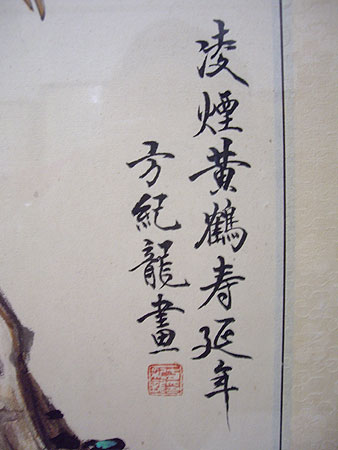 凌煙黃鶴寿延年
方紀龍畫